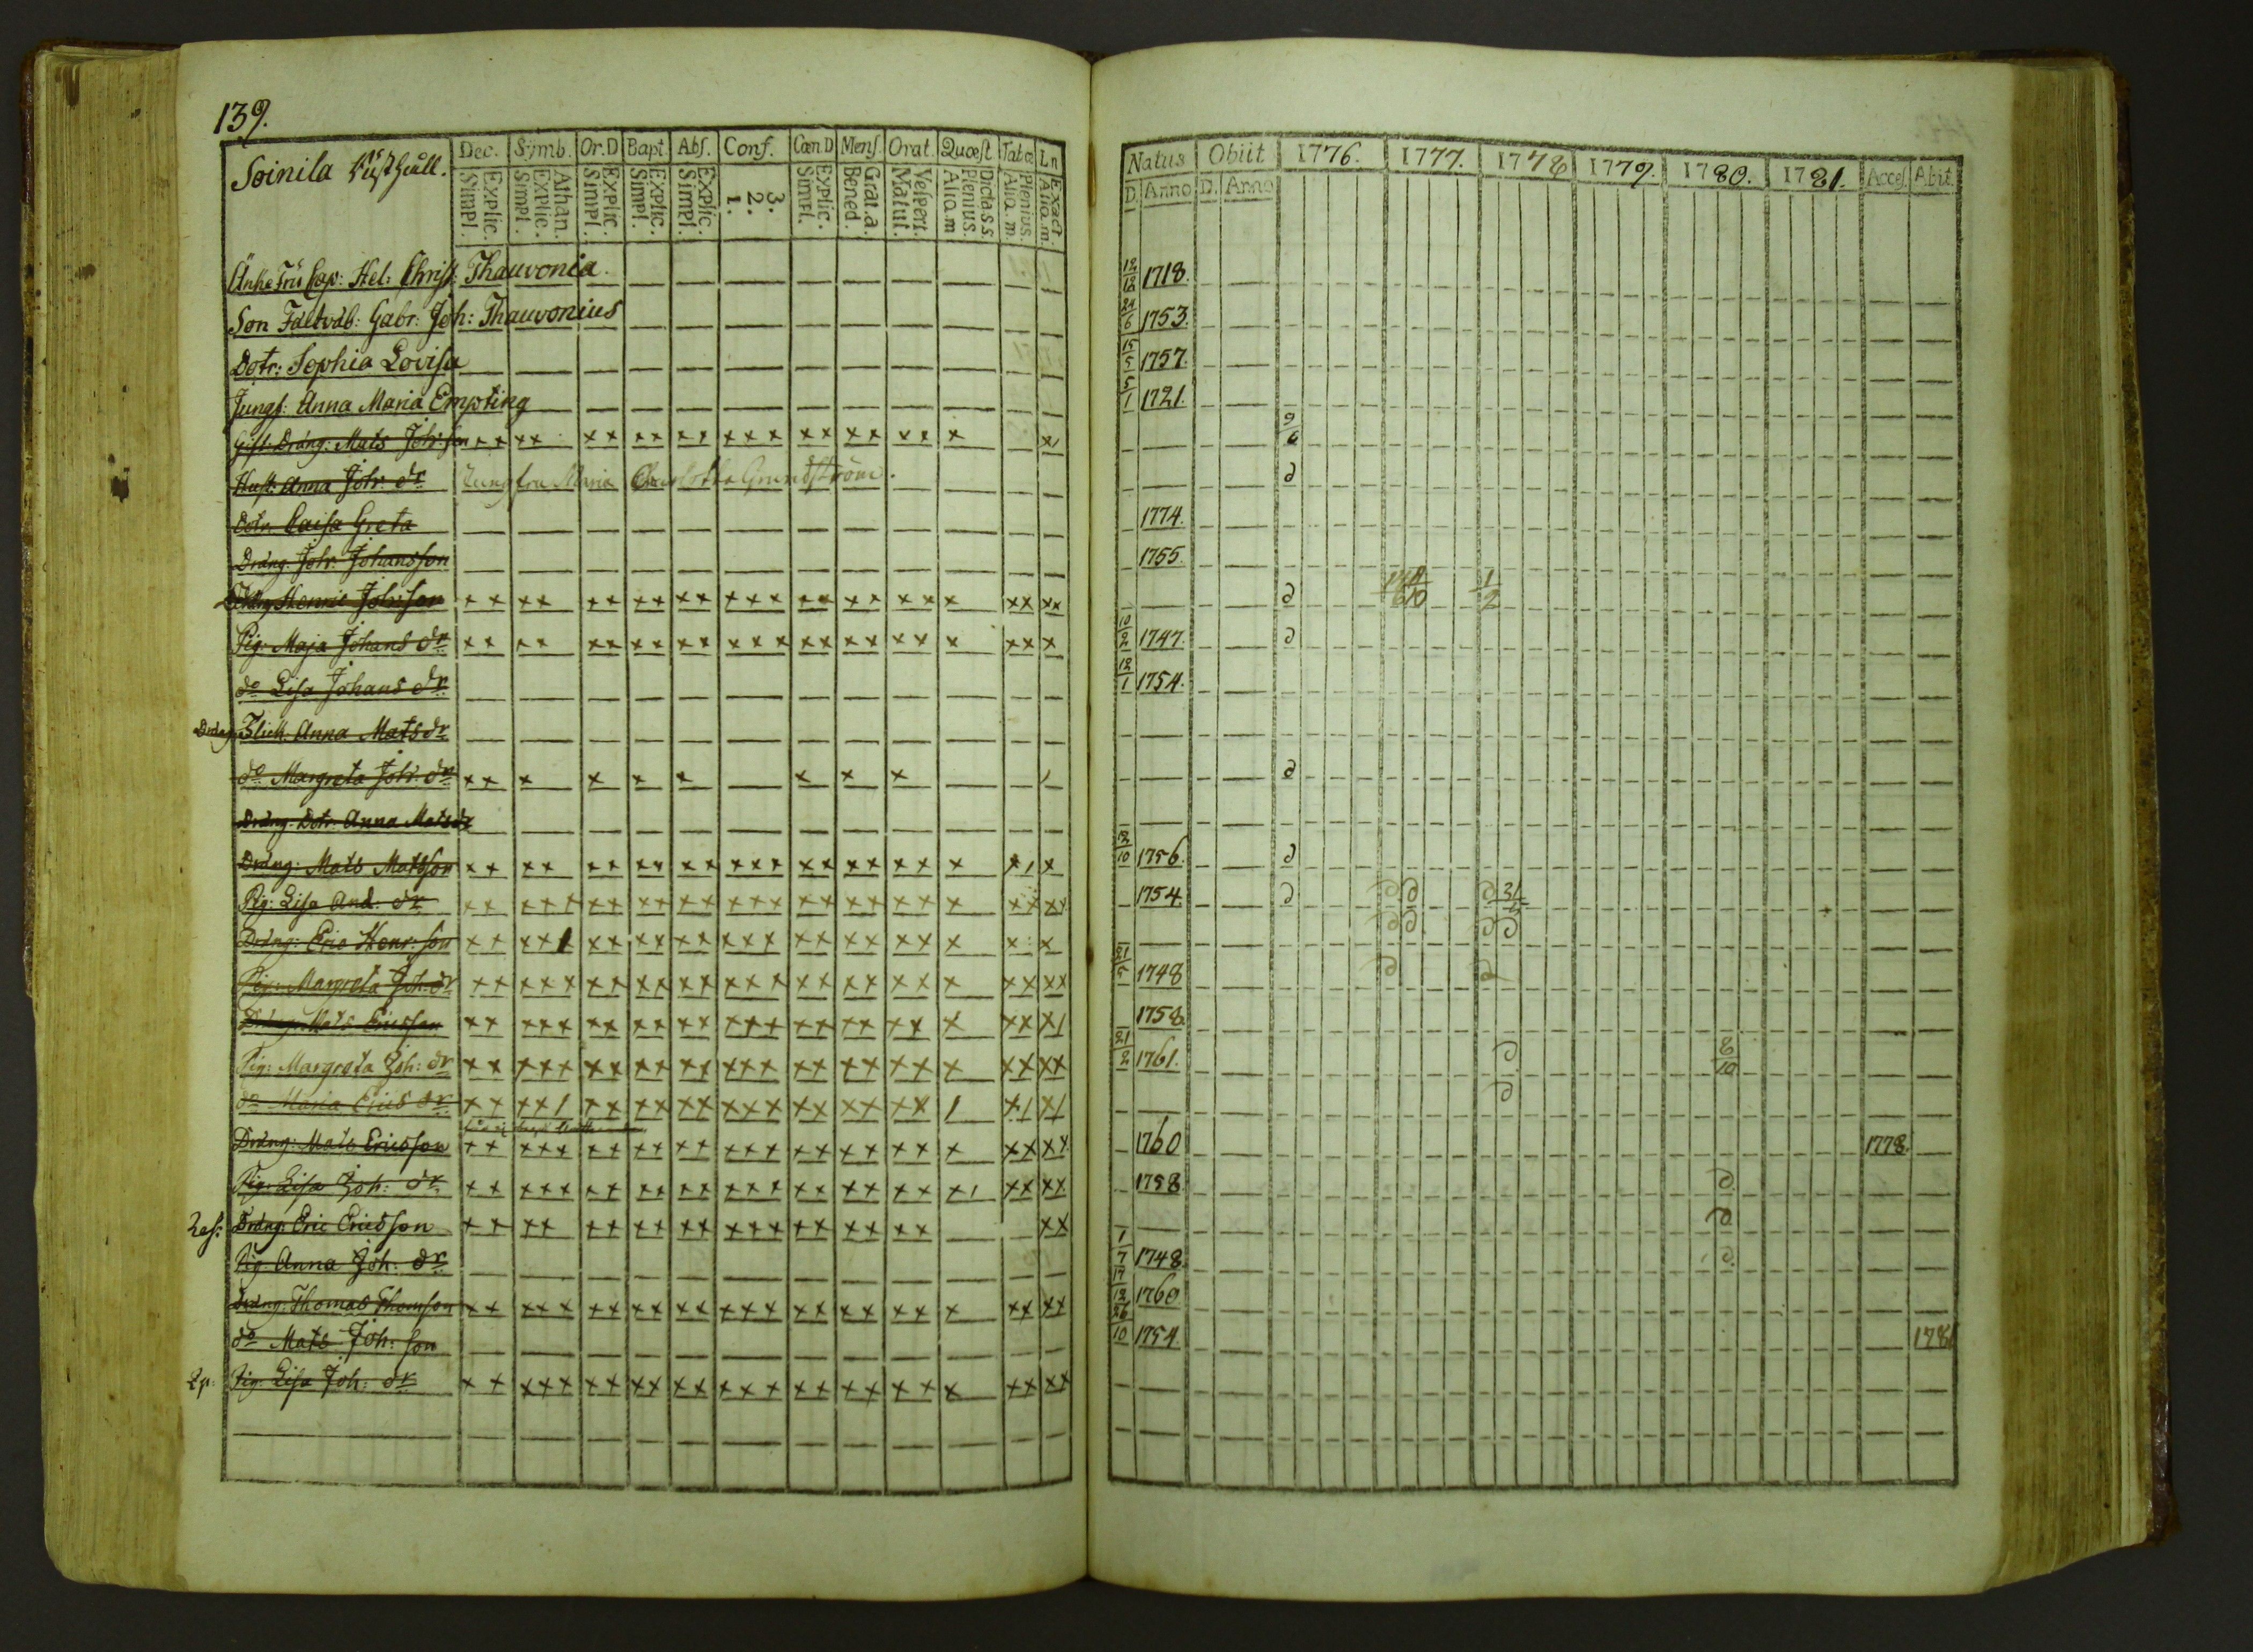 139.
Soinila
Dec. Symb. Or.D Bapt. Abs. Conf. Cœn D Mens. Orat. Quæst Tabæ Ln
Explic. Simpl. Athan. Explic. Simpl. Explic. Simpl. Explic. Simpl. Explic. Simpl. 3. 2. 1. Explic. Simpl. Grat.a. Bened. Vespert. Matut. Dicta S.S. Plenius. Aliq.m Plenius. Aliq.m. Exact. Aliq.m.
Änke Fru Cap: Hel: Christ: Thauvonia.
Son Fältväb: Gabr: Joh: Thauvonius
Dotr: Sophia Lovisa
Jungf: Anna Maria Empting
Gift. Dräng: Mats Joh: son
Hust: Anna Joh: dr Jungfru Maria Charlotta Grundström.
Dotr. Caisa Greta
Dräng: Joh: Johansson
Henric Joh: son
Pig: Maja Johans dr
do Lisa Johans dr
Flick. Anna Mats dr
do Margreta Joh: dr
Dräng. Dotr. Anna Mats dr
Dräng: Mats Matsson
Pig: Lisa And: dr
Dräng: Eric Henr: son
Pig: Margreta Joh: dr
Dräng: Mats Ericsson
Pig: Margreta Joh: dr
do Maria Erics dr
Dräng: Mats Ericsson
Pig: Lisa Joh: dr
Dräng: Eric Ericsson
Pig: Anna Joh: dr
Dräng: Thomas Thomson
do Mats Joh: son
Pig: Lisa Joh: dr
Natus Obiit 1776. 1777. 1778 1779. 1780. 1781. Acces. Abit.
D. Anno D. Anno
12/12 1718.
24/6 1753.
15/5 1757.
5/1 1721.
9/6
1774.
1755.
1/2
10/2 1747.
12/1 1754.
12/10 1756.
1754.
21/5 1748
1758
21/2 1761. 8/10
1760 1778.
1758
1/7 1748
17/12 1760
26/10 1754. 1781